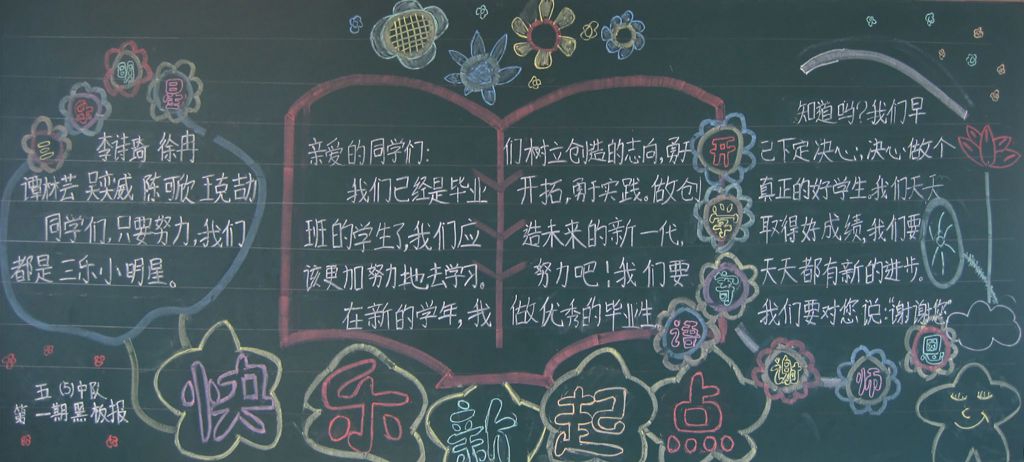 三乐明星
李诗琦 徐冉
谭林芸 吴奕威 陈可欣 王克劼
同学们,只要努力,我们
都是三乐小明星。
五(5)中队
第一期黑板报
亲爱的同学们:
我们已经是毕业
班的学生了,我们应
该更加努力地去学习。
在新的学年,我
们树立创造的志向,勇于
开拓,勇于实践,做创
造未来的新一代,
努力吧!我们要
做优秀的毕业生
开学寄语
知道吗?我们早
已下定决心,决心做个
真正的好学生,我们天天
取得好成绩,我们要
天天都有新的进步。
我们要对您说:“谢谢您”
谢师恩
快乐新起点